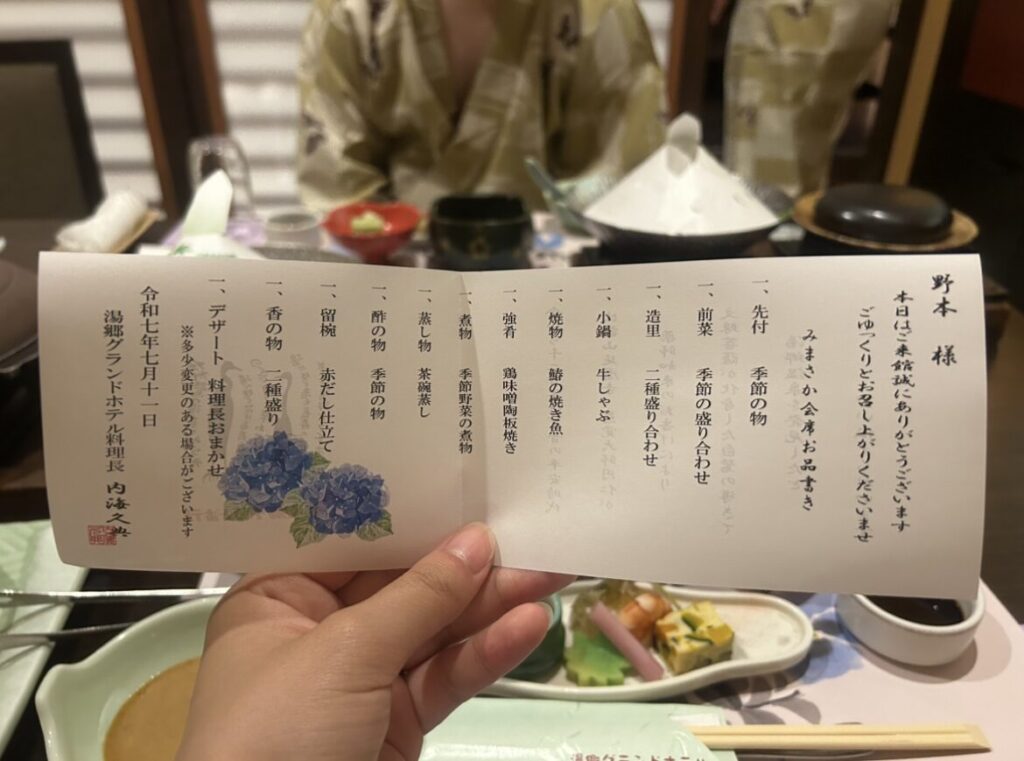 野本 様
本日はご来館誠にありがとうございます
ごゆっくりとお召し上がりくださいませ
みまさか会席お品書き
一、先付 季節の物
一、前菜 季節の盛り合わせ
一、造里 二種盛り合わせ
一、小鍋 牛しゃぶ
一、焼物 鰆の焼き魚
一、強肴 鶏味噌陶板焼き
一、煮物 季節野菜の煮物
一、蒸し物 茶碗蒸し
一、酢の物 季節の物
一、留椀 赤だし仕立て
一、香の物 二種盛り
一、デザート 料理長おまかせ
※多少変更のある場合がございます
令和七年七月十一日
湯郷グランドホテル料理長 内海久典
湯郷グランドホテル